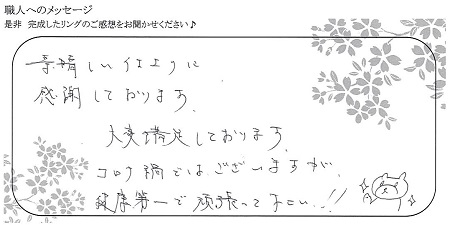 職人へのメッセージ
是非 完成したリングのご感想をお聞かせください♪
素晴しい仕上りに
感謝しております。
大変満足しております。
コロナ禍ではございますが、
健康第一で頑張って下さい!!